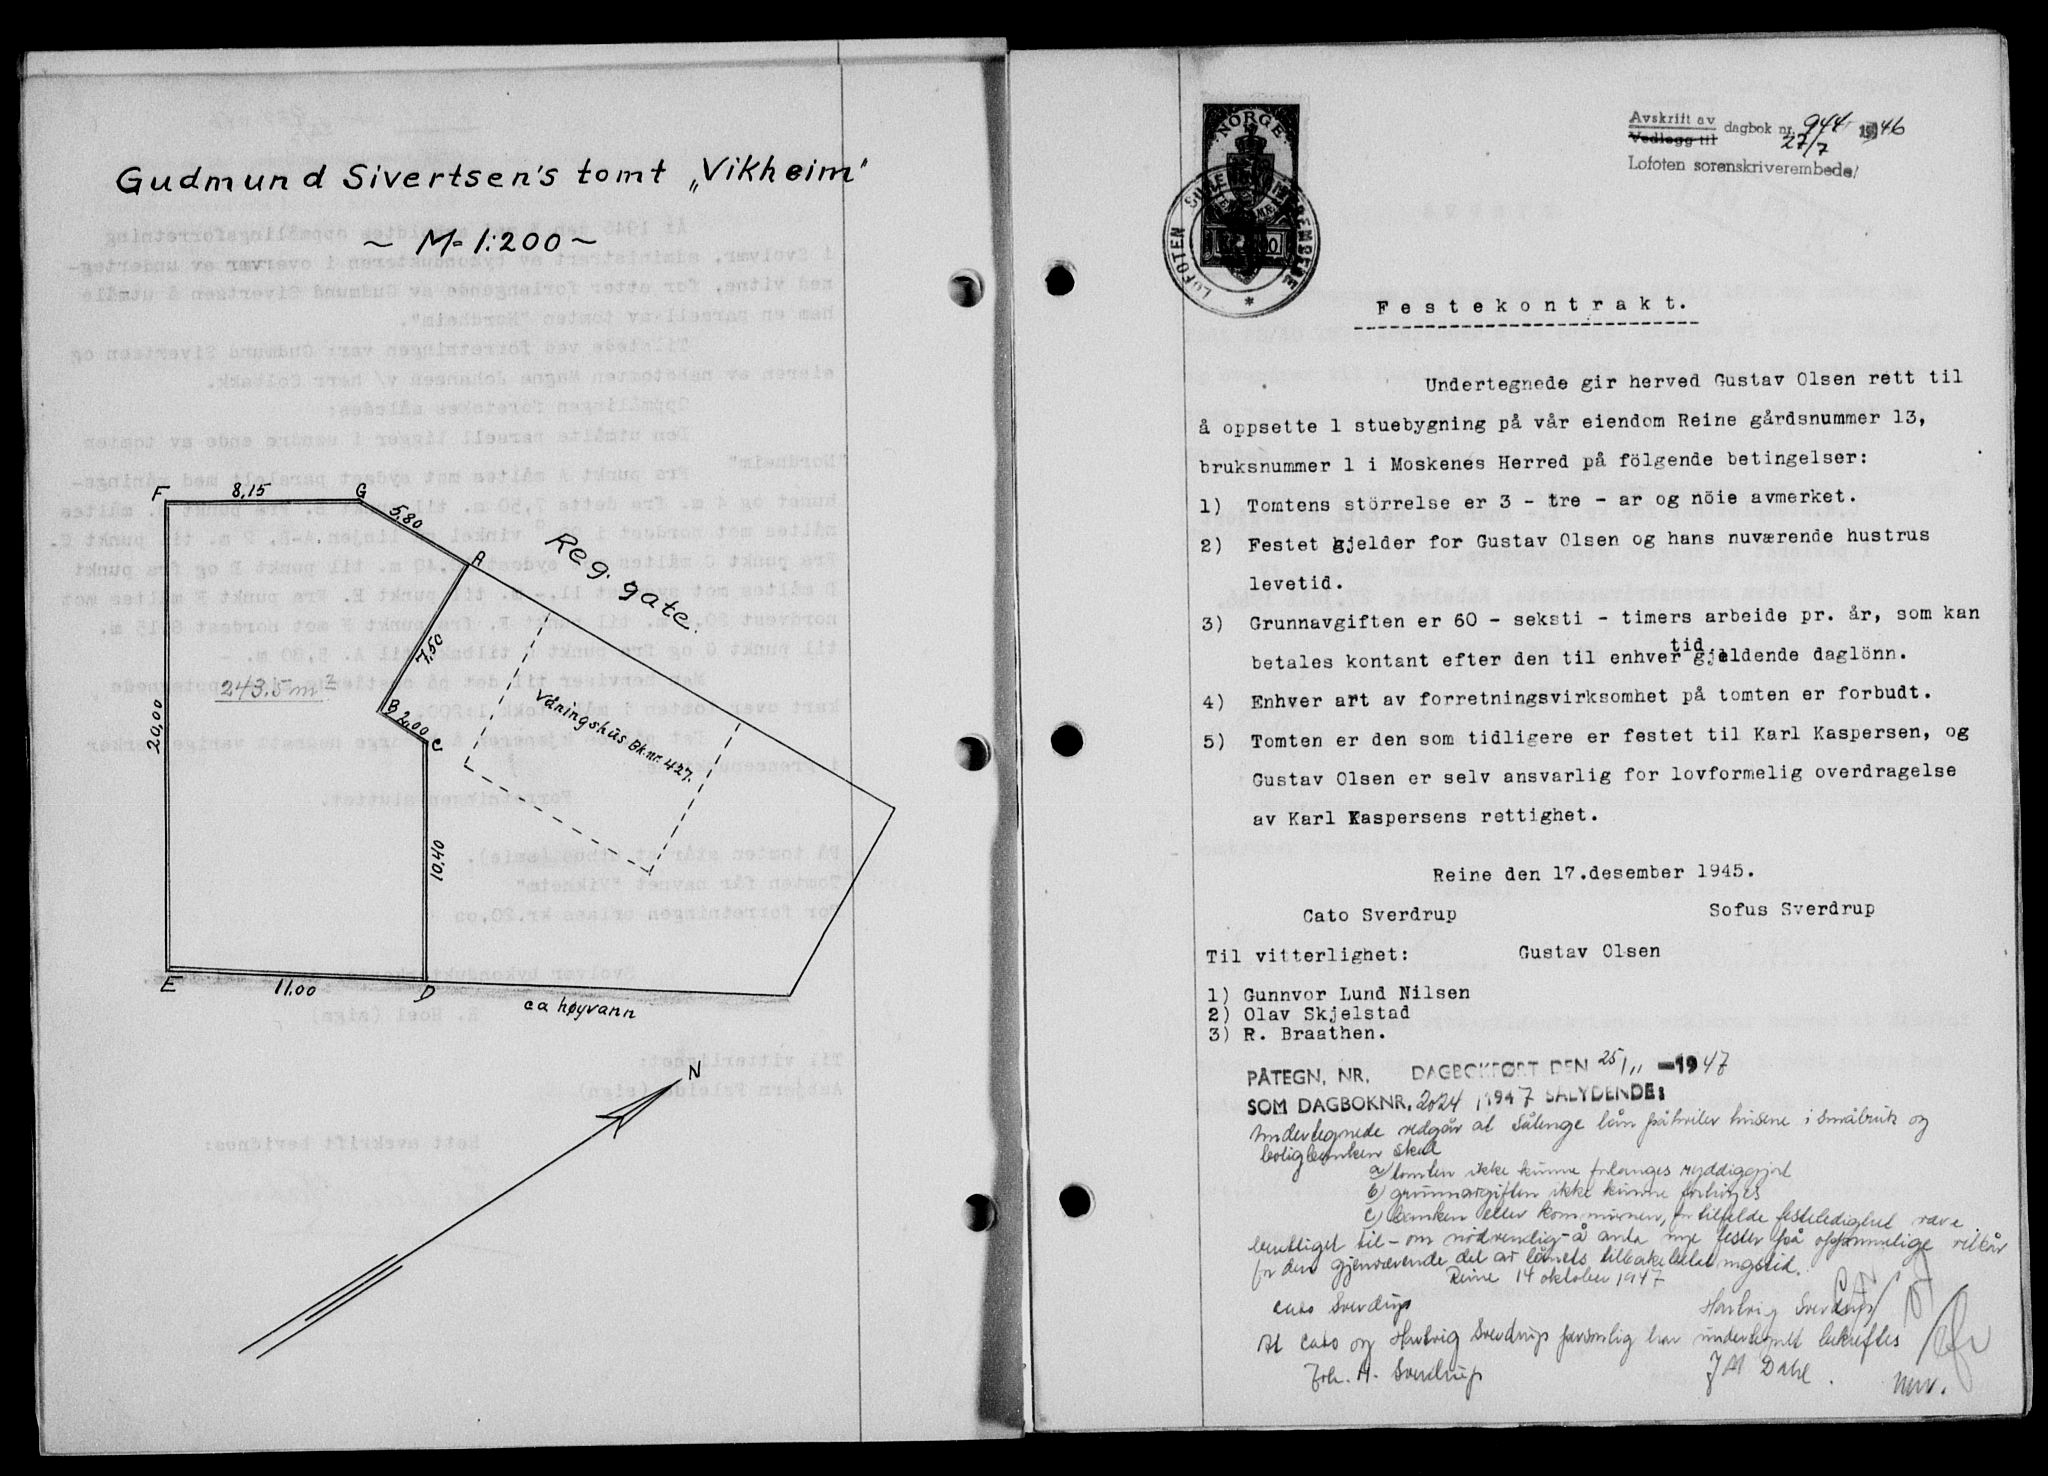 Gudmund Sivertsen's tomt „Vikheim"
~ M= 1:200 ~
F 8,15 G
5,80
A
Reg. gate.
7,50
243,5 m²
B 2,00 C
20,00
Vdningshus Bk.nr. 427.
10,40
E 11.00 D
ca høyvann
N
Avskrift av
Vedlegg til dagbok nr. 944 1946
27/7
Lofoten sorenskriverembede
NORGE
LOFOTEN SORENSKRIVEREMBEDE
Festekontrakt.
Undertegnede gir herved Gustav Olsen rett til
å oppsette 1 stuebygning på vår eiendom Reine gårdsnummer 13,
bruksnummer 1 i Moskenes Herred på fölgende betingelser:
1) Tomtens störrelse er 3 - tre - ar og nöie avmerket.
2) Festet gjelder for Gustav Olsen og hans nuværende hustrus
levetid.
3) Grunnavgiften er 60 - seksti - timers arbeide pr. år, som kan
betales kontant efter den til enhver tid gjeldende daglönn.
4) Enhver art av forretningsvirksomhet på tomten er forbudt.
5) Tomten er den som tidligere er festet til Karl Kaspersen, og
Gustav Olsen er selv ansvarlig for lovformelig overdragelse
av Karl Kaspersens rettighet.
Reine den 17.desember 1945.
Cato Sverdrup Sofus Sverdrup
Til vitterlighet: Gustav Olsen
1) Gunnvor Lund Nilsen
2) Olav Skjelstad
3) R. Braathen.
PÅTEGN. NR. DAGBOKFØRT DEN 25/11 -1947
SOM DAGBOKNR. 2024 1947 SÅLYDENDE:
Undertegnede vedgår at Sålenge lån påhviler husene i småbruk og
boligbanken skal
a) tomten ikke kunne forlanges ryddiggjort
b) grunnavgiften ikke kunne forhöyes
c) banken eller kommunen, for tilfelde festeledighet være
berettiget til - om nödvendig - å anta nye fester på opprinnelige vilkår
for den gjenværende del av lånets tilbakebetalingstid.
Reine 14 oktober 1947
Cato Sverdrup Hartvig Sverdrup
At Cato og Hartvig Sverdrup personlig har undertegnet bekreftes
Joh. H. Sverdrup J M Dahl.